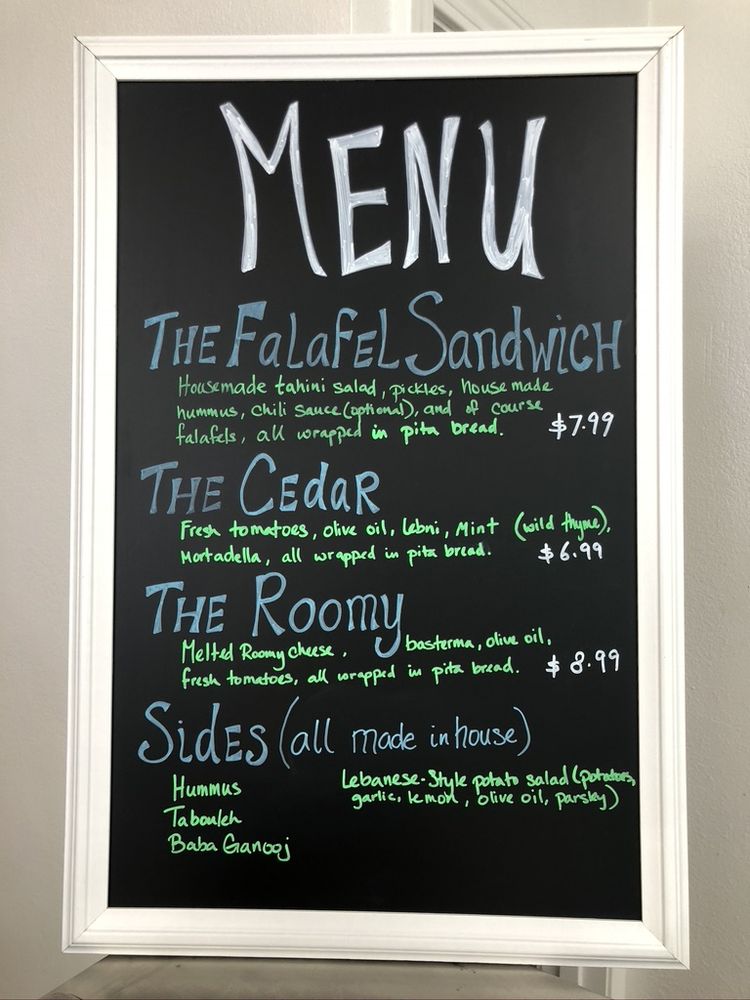 MENU
THE FALAFEL SANDWICH
Housemade tahini salad, pickles, house made
hummus, chili sauce (optional), and of course
falafels, all wrapped in pita bread. $7.99
THE CEDAR
Fresh tomatoes, olive oil, lebni, Mint (wild thyme),
Mortadella, all wrapped in pita bread. $6.99
THE ROOMY
Melted Roomy cheese, basterma, olive oil,
fresh tomatoes, all wrapped in pita bread. $8.99
SIDES (all made in house)
Hummus
Tabouleh
Baba Ganooj
Lebanese-Style potato salad (potatoes,
garlic, lemon, olive oil, parsley)